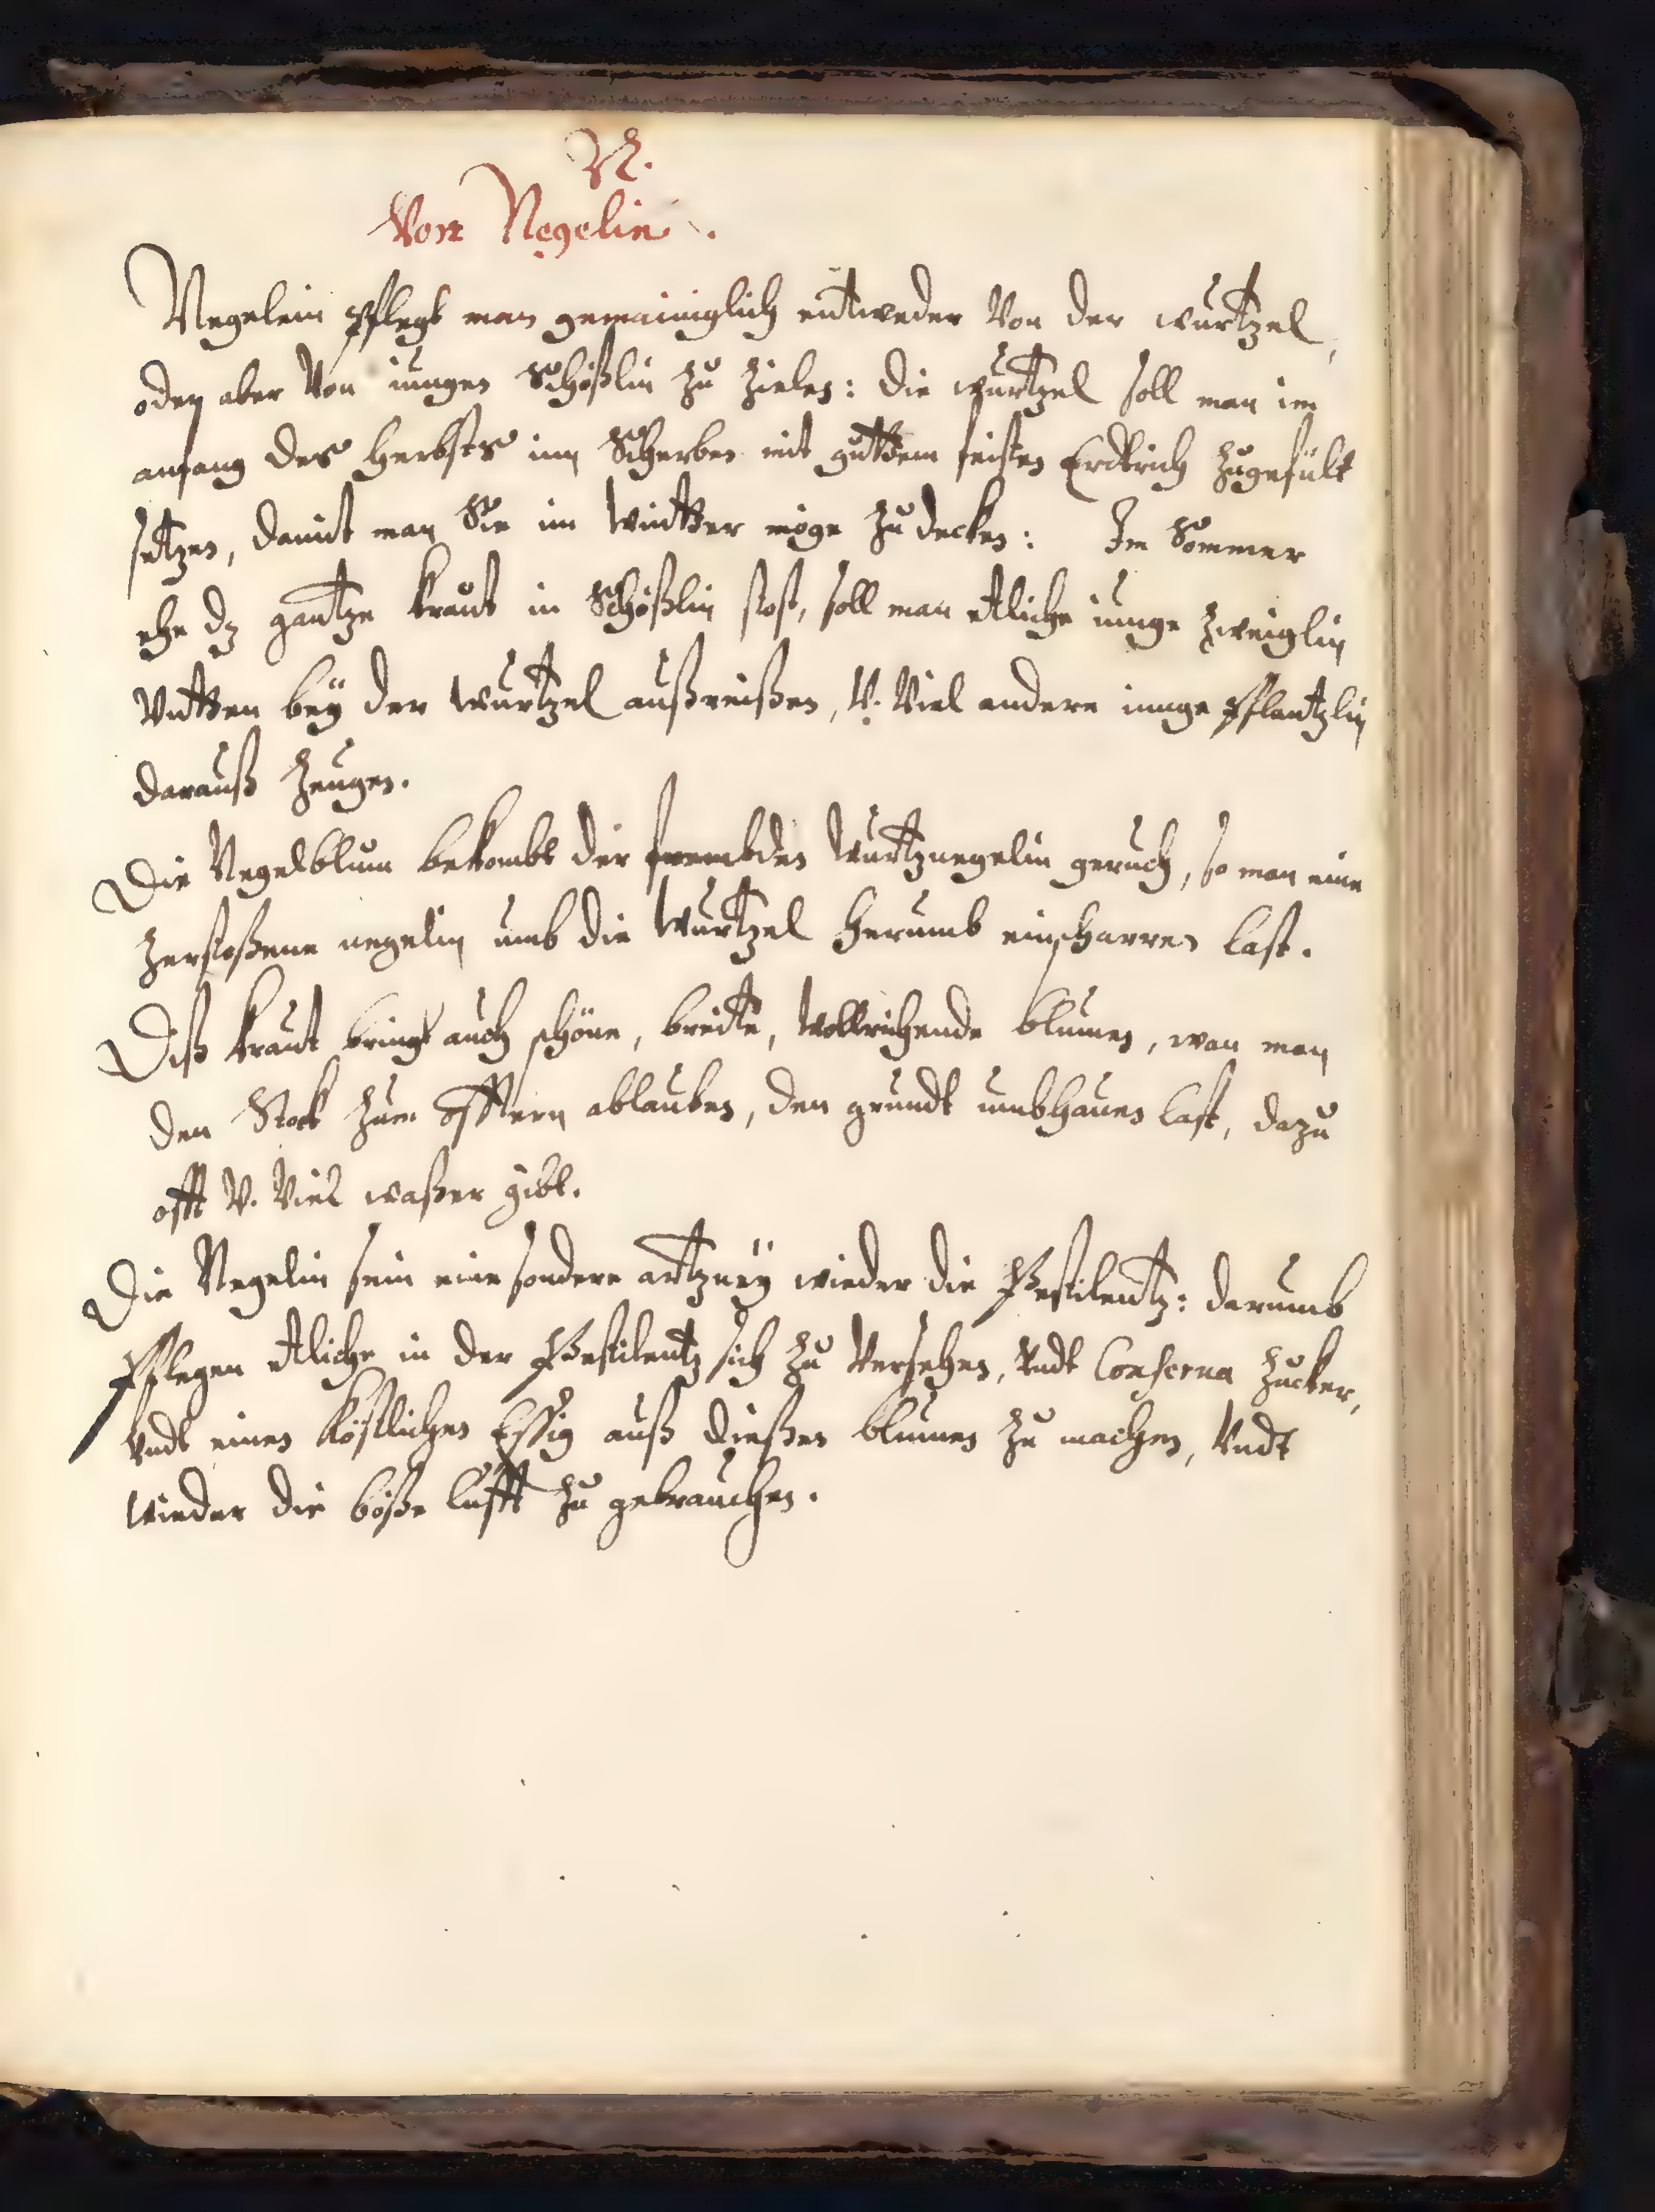 N.
Von Negelin.
Negelein pflegt man gemainiglich entweder Von der wurtzel,
oder aber Von iungen Schößlin zu zielen: die wurtzel soll man im
anfang des Herbsts inn Scherben mit guttem feisten Erdtrich zugefült
setzen, damit man Sie im Wintter möge zu decken: Im Sommer
ehe dz gantze kraut in Schößlin stost, soll man etliche iunge zweiglin
Vntten bey der Wurtzel außreißen, V. Viel andere iunge Pflantzlin
darauß zeugen.
Die Negelblum bekombt der frembden Wurtznegelin geruch, so man eine
zerstoßene negelin umb die Wurtzel herumb einscharren last.
Diß kraut bringt auch schöne, breite, Wollrichende blumen, wan man
den Stock zum öfftern ablauben, den grundt umbhauen last, dazu
offt V. Viel waßer gibt.
Die Negelin sein eine sondere artzney wieder die Pestilentz: darumb
Pflegen etliche in der Pestilentz sich zu Versehen, Vndt Conserua Zucker,
Vndt einen köstlichen Essig auß dießen blumen zu machen, Vndt
wieder die böße lufft zu gebrauchen.